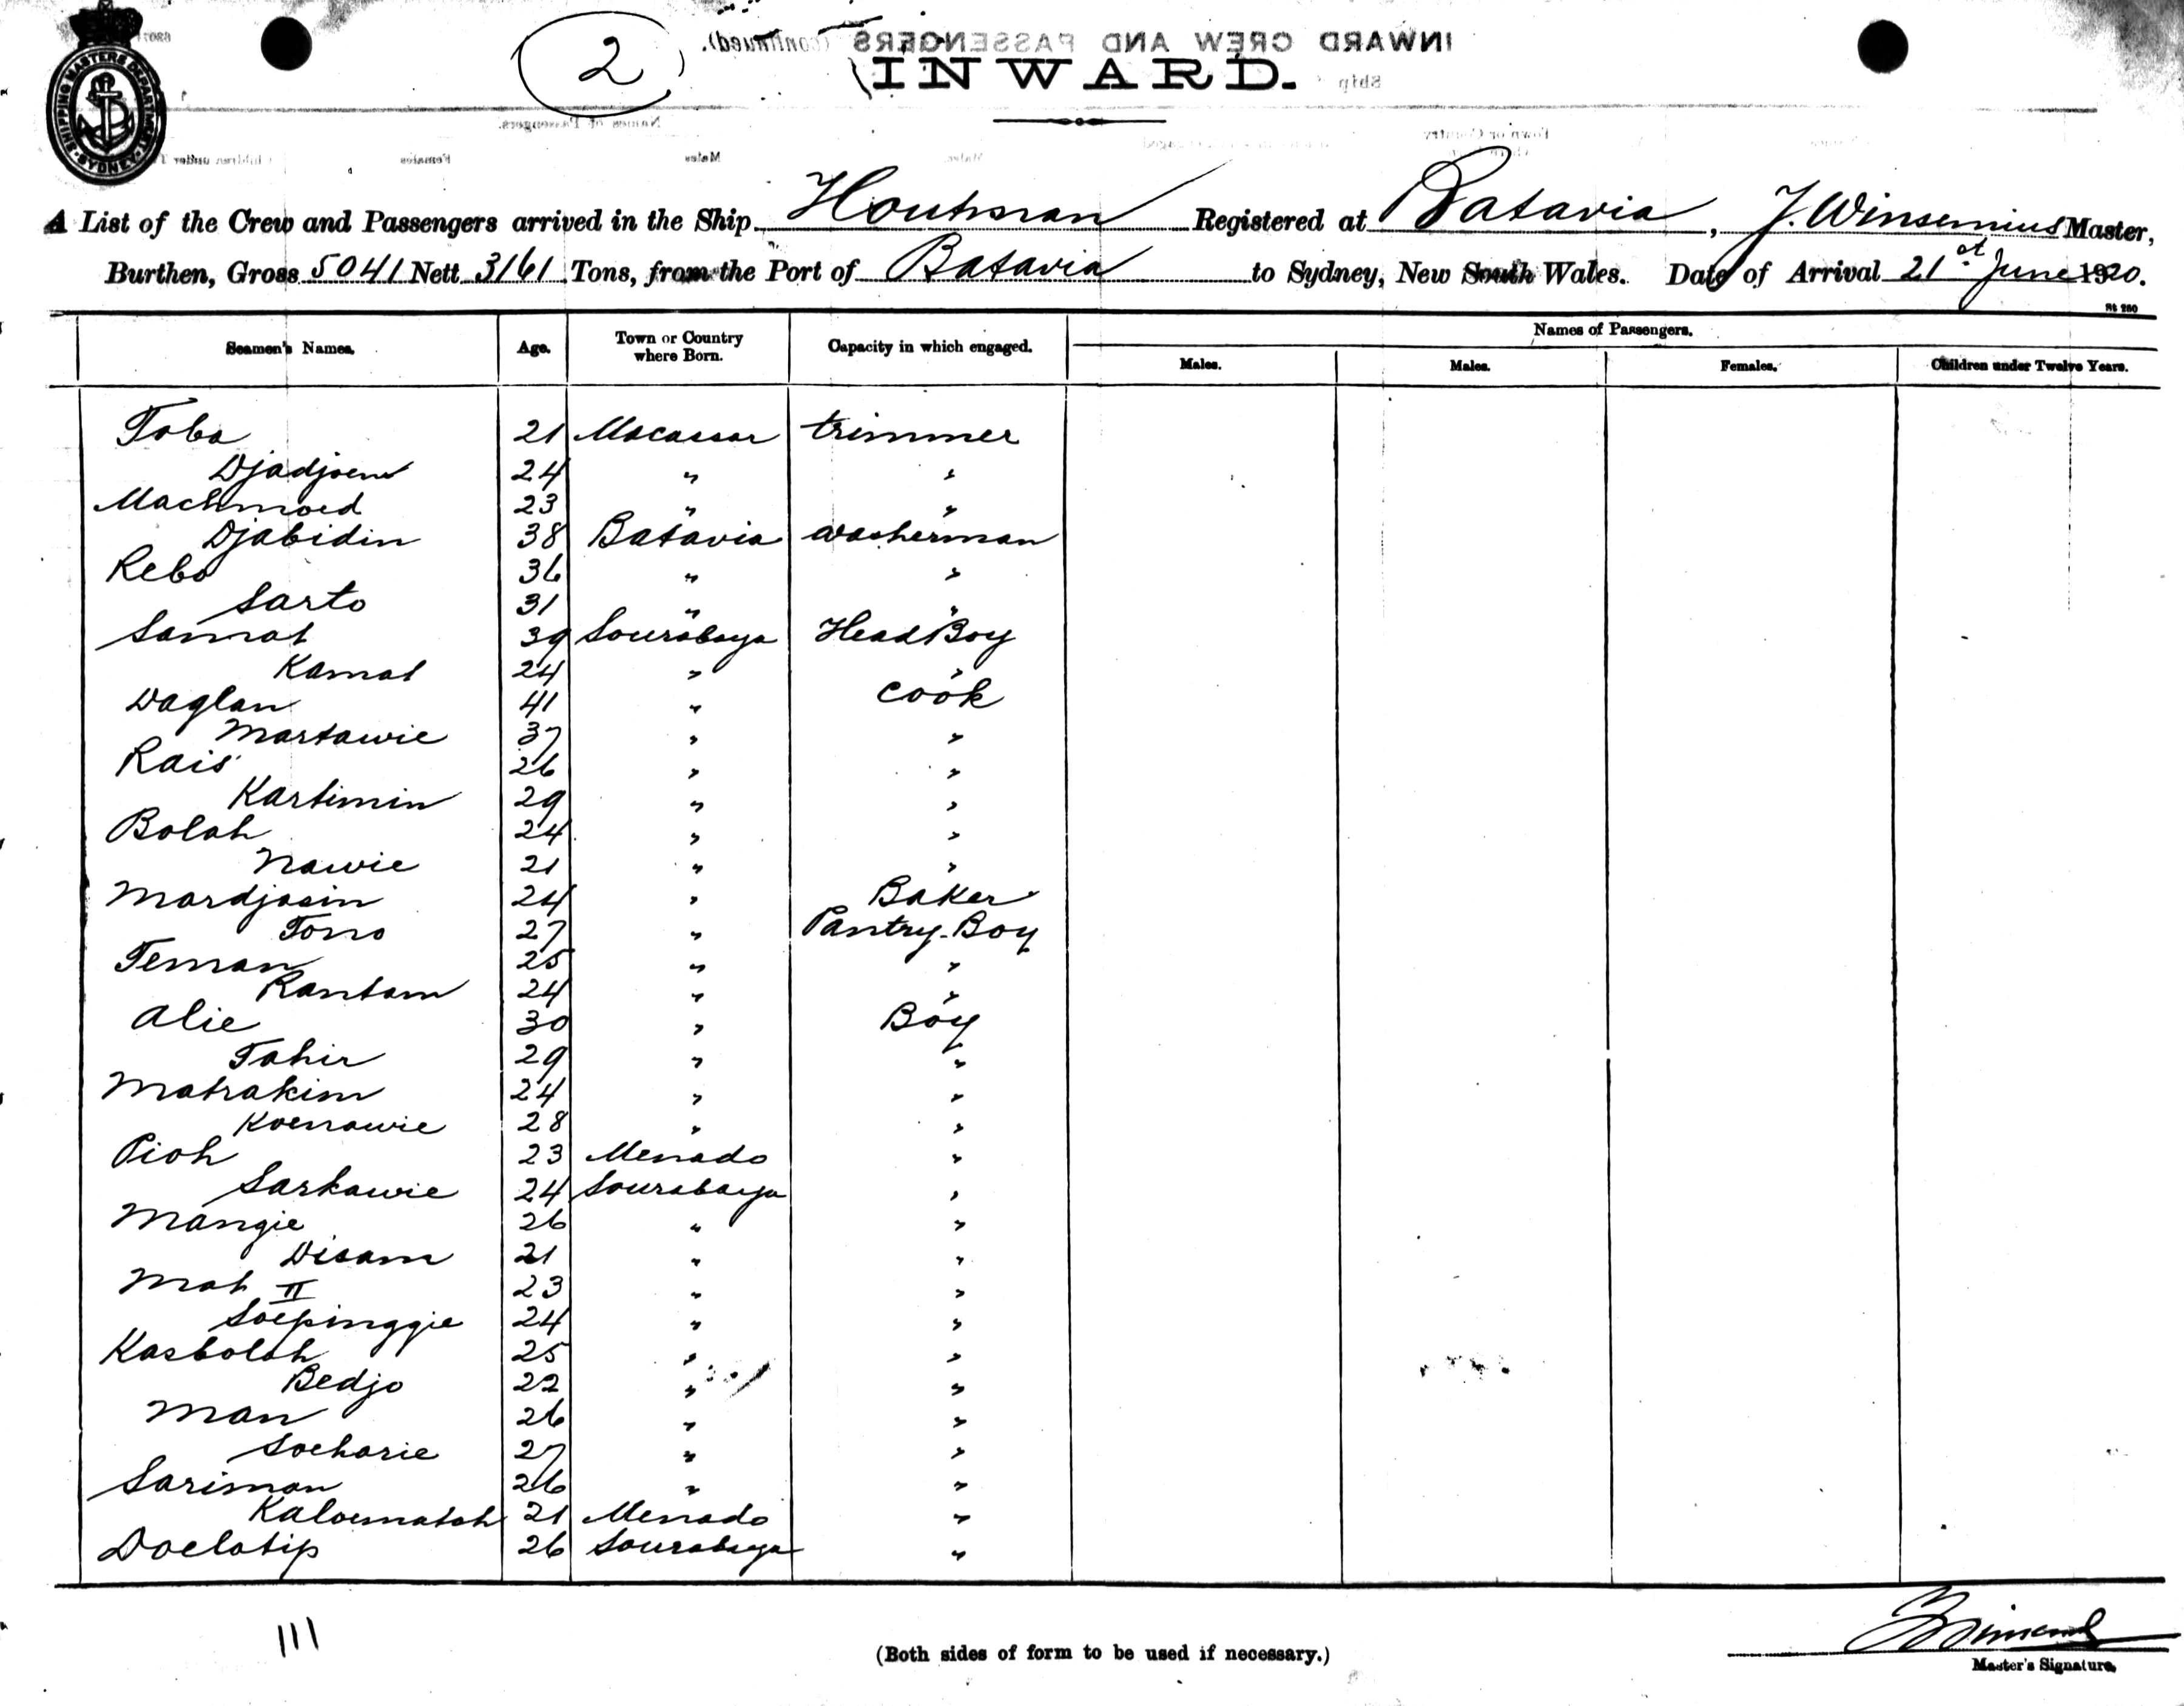 2
INWARD.
A List of the Crew and Passengers arrived in the Ship Houtman Registered at Batavia, J. Winsemius Master,
Burthen, Gross 5041 Nett 3161 Tons, from the Port of Batavia to Sydney, New South Wales. Date of Arrival 21st June 1920.
St 260
Seamen's Names. Age. Town or Country where Born. Capacity in which engaged. Names of Passengers.
Males. Males. Females. Children under Twelve Years.
Toba 21 Macassar trimmer
Djadjoem 24 " "
Machmoed 23 " "
Djabidin 38 Batavia washerman
Rebo 36 " "
Sarto 31 " "
Samat 39 Sourabaya Head Boy
Kamat 24 " "
Daglan 41 " cook
Martawie 37 " "
Rais 26 " "
Kartimin 29 " "
Bolah 24 " "
Nawie 21 " "
Mardjasin 24 " Baker
Tono 27 " Pantry-Boy
Teman 25 " "
Rantam 24 " "
Alie 30 " Boy
Tahir 29 " "
Matrakim 24 " "
Koenawie 28 " "
Pioh 23 Menado "
Sarkawie 24 Sourabaya "
Mangie 26 " "
Disam 21 " "
Mat II 23 " "
Soepinggie 24 " "
Kasbolah 25 " "
Bedjo 22 " "
Man 26 " "
Socharie 27 " "
Sariman 26 " "
Kaloematah 21 Menado "
Doelatip 26 Sourabaya "
111
(Both sides of form to be used if necessary.)
Master's Signature.